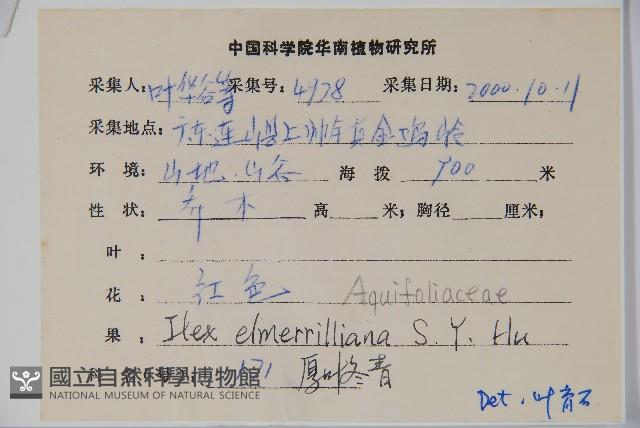 中国科学院华南植物研究所
采集人: 叶华谷等 采集号: 4978 采集日期: 2000.10.11
采集地点: 广东.连山县上
环 境: 山地.山谷 海 拨 700 米
性 状: 乔木 高 米; 胸径 厘米;
叶 :
花 : 红色 Aquifoliaceae
果 : Ilex elmerrilliana S. Y. Hu
171 厚叶冬青
國立自然科學博物館
NATIONAL MUSEUM OF NATURAL SCIENCE
Det. 叶育石